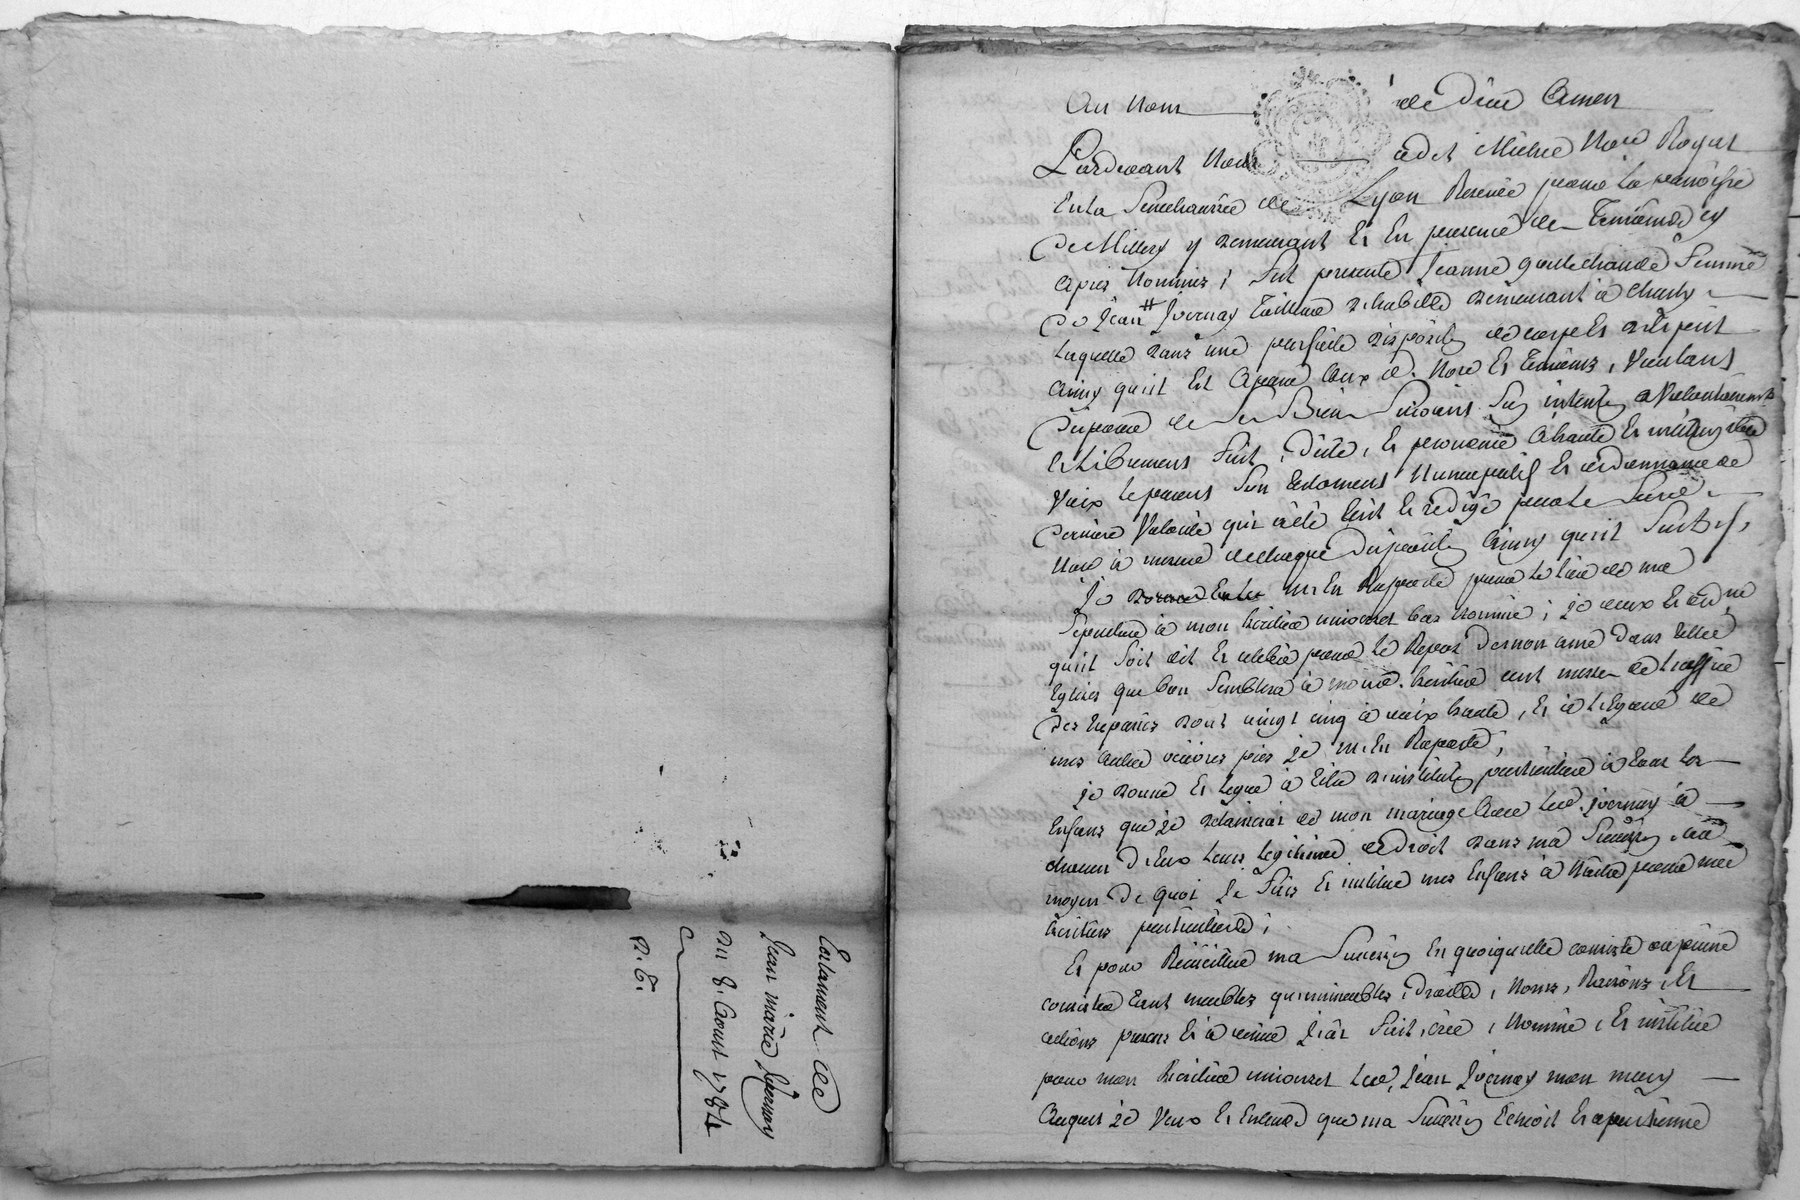 Testament de
Jean marie Jvernay
du 8. Aoust 1784
P. C.
Au Nom de Dieu Amen
Pardevant Nous Michel Nore Royal
En la Senechaussée de Lyon Reservé pour la parroisse
De Millery y demeurant Et En presence des Temoins En
Apres Nommés ; fut presente Jeanne femme
De Jean # Jvernay Tailleur d'habilts demeurant à Charly
Laquelle dans une parfaite dispositon de corps Et d'Esprit
Ainsy qu'il Est Aparu Aux d. Nore Et Temoins, Voulant
Disposer de Ses Biens Suivant Son intenton a Volontairement
Et Librement fait, dicté, Et prononcé A haute Et intelligible
Voix Le present Son testament Nuncupatif Et ordonnance de
Derniere Volonté qui a été Ecrit Et redigé par Le Susd.
Nore à mesure de chaque Dispositon Ainsy qu'il Suit
Je m'En Rapporte pour Le lieu de ma
Sepulture à mon heritier universel bas Nommé ; je veux Et ordonne
qu'il Soit dit Et celebré pour Le Repos De mon ame Dans telles
Eglises que bon Semblera à mond. heritier cent messes de L'office
Des trepassés dont vingt cinq à voix haute, Et à L'Egard de
mes Autres oeuvres pies je m'En Raporte ;
je donne Et legue à titre d'institution particuliere à tous les
Enfans que je delaisserai de mon mariage Avec Led. jvernay à
chacun D'Eux Leurs legitimes de droit dans ma Successon, Au
moyen De quoi je fais Et institue mes Enfans à Naitre pour mes
heritiers particuliers ;
Et pour Recueillir ma Successon En quoiqu'elle consiste ou puisse
consister tant meubles qu'immeubles, droits, Noms, Raisons, Et
actions presens Et à venir j'ai fait, créé, Nommé, Et institué
pour mon heritier universel Led. Jean Jvernay mon mary
Auquel je Veux Et Entends que ma Successon Echoit Et apartienne